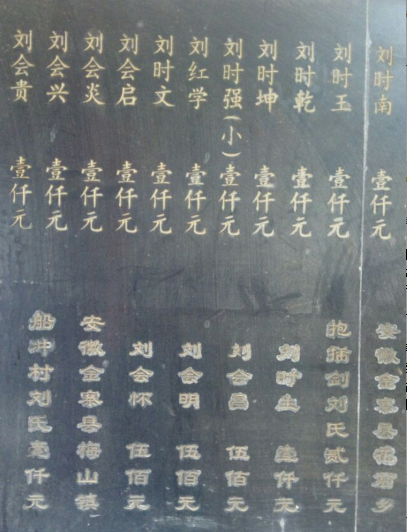 刘时南 壹仟元
刘时玉 壹仟元
刘时乾 壹仟元
刘时坤 壹仟元
刘时强(小) 壹仟元
刘红学 壹仟元
刘时文 壹仟元
刘会启 壹仟元
刘会炎 壹仟元
刘会兴 壹仟元
刘会贵 壹仟元
安徽金寨县 乡
刘氏贰仟元
刘时 仟元
刘会昌 伍佰元
刘会明 伍佰元
刘会怀 伍佰元
安徽金寨县梅山镇
船冲村刘氏 仟元